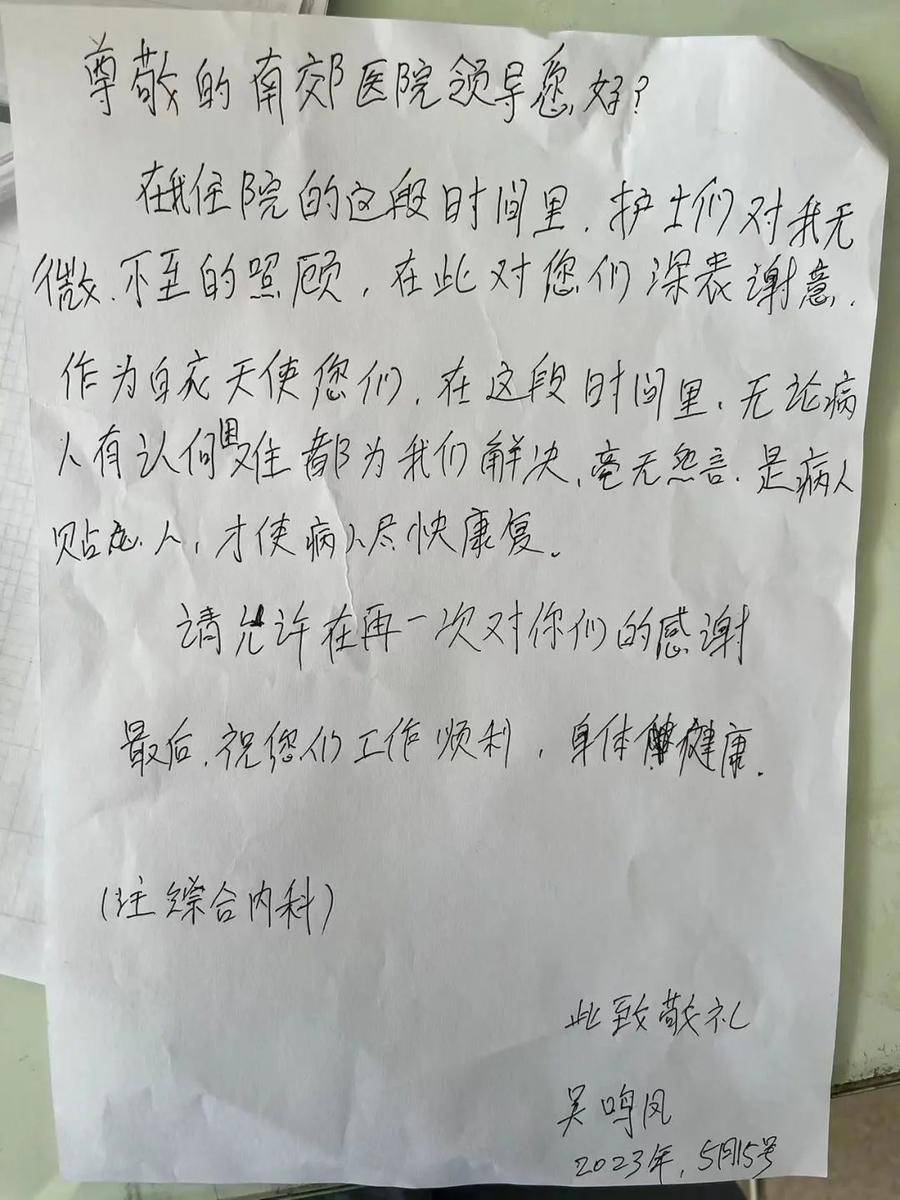 尊敬的南郊医院领导您好?
在我住院的这段时间里，护士们对我无
微、不至的照顾，在此对您们深表谢意.
作为白衣天使您们，在这段时间里、无论病
人有认何困难都为我们解决、毫无怨言.是病人
贴心人，才使病人尽快康复。
请允许在再一次对你们的感谢
最后、祝您们工作顺利，身体健康.
(注综合内科)
此致敬礼
吴鸣凤
2023年，5月15号